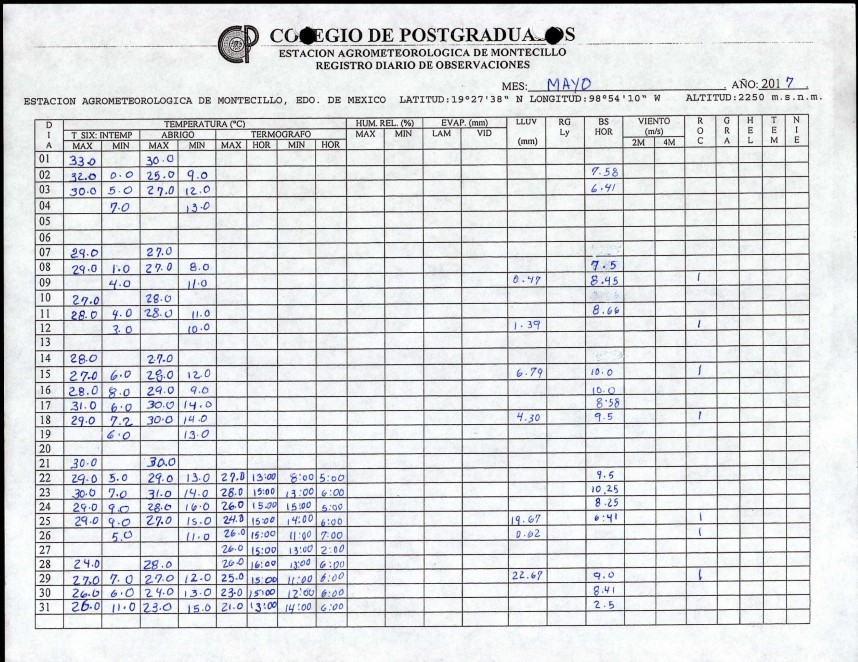 COLEGIO DE POSTGRADUADOS
ESTACION AGROMETEOROLOGICA DE MONTECILLO
REGISTRO DIARIO DE OBSERVACIONES
MES: MAYO . AÑO: 2017.
ESTACION AGROMETEOROLOGICA DE MONTECILLO, EDO. DE MEXICO LATITUD:19°27'38" N LONGITUD:98°54'10" W ALTITUD:2250 m.s.n.m.
DIA TEMPERATURA (°C) HUM. REL. (%) EVAP. (mm) LLUV (mm) RG Ly BS HOR VIENTO (m/s) ROC GRA HEL TEM NIE
T SIX: INTEMP ABRIGO TERMOGRAFO
MAX MIN MAX MIN MAX HOR MIN HOR MAX MIN LAM VID 2M 4M
01 33.0 30.0
02 32.0 0.0 25.0 9.0 7.58
03 30.0 5.0 27.0 12.0 6.41
04 7.0 13.0
05
06
07 29.0 27.0
08 29.0 1.0 27.0 8.0 7.5
09 4.0 11.0 0.47 8.45 1
10 27.0 28.0
11 28.0 4.0 28.0 11.0 8.66
12 3.0 10.0 1.39 1
13
14 28.0 27.0
15 27.0 6.0 28.0 12.0 6.79 10.0 1
16 28.0 8.0 29.0 9.0 10.0
17 31.0 6.0 30.0 14.0 8.58
18 29.0 7.2 30.0 14.0 4.30 9.5 1
19 6.0 13.0
20
21 30.0 30.0
22 29.0 5.0 29.0 13.0 27.0 13:00 8:00 5:00 9.5
23 30.0 7.0 31.0 14.0 28.0 15:00 13:00 6:00 10.25
24 29.0 9.0 28.0 16.0 26.0 15:00 15:00 5:00 8.25
25 29.0 9.0 27.0 15.0 24.0 15:00 14:00 6:00 19.67 6.41 1
26 5.0 11.0 26.0 15:00 11:00 7:00 0.02 1
27 26.0 15:00 13:00 2:00
28 24.0 28.0 26.0 16:00 6:00
29 27.0 7.0 27.0 12.0 25.0 15:00 11:00 6:00 22.67 9.0 1
30 26.0 6.0 24.0 13.0 23.0 15:00 12:00 6:00 8.41
31 26.0 11.0 23.0 15.0 21.0 13:00 14:00 6:00 2.5